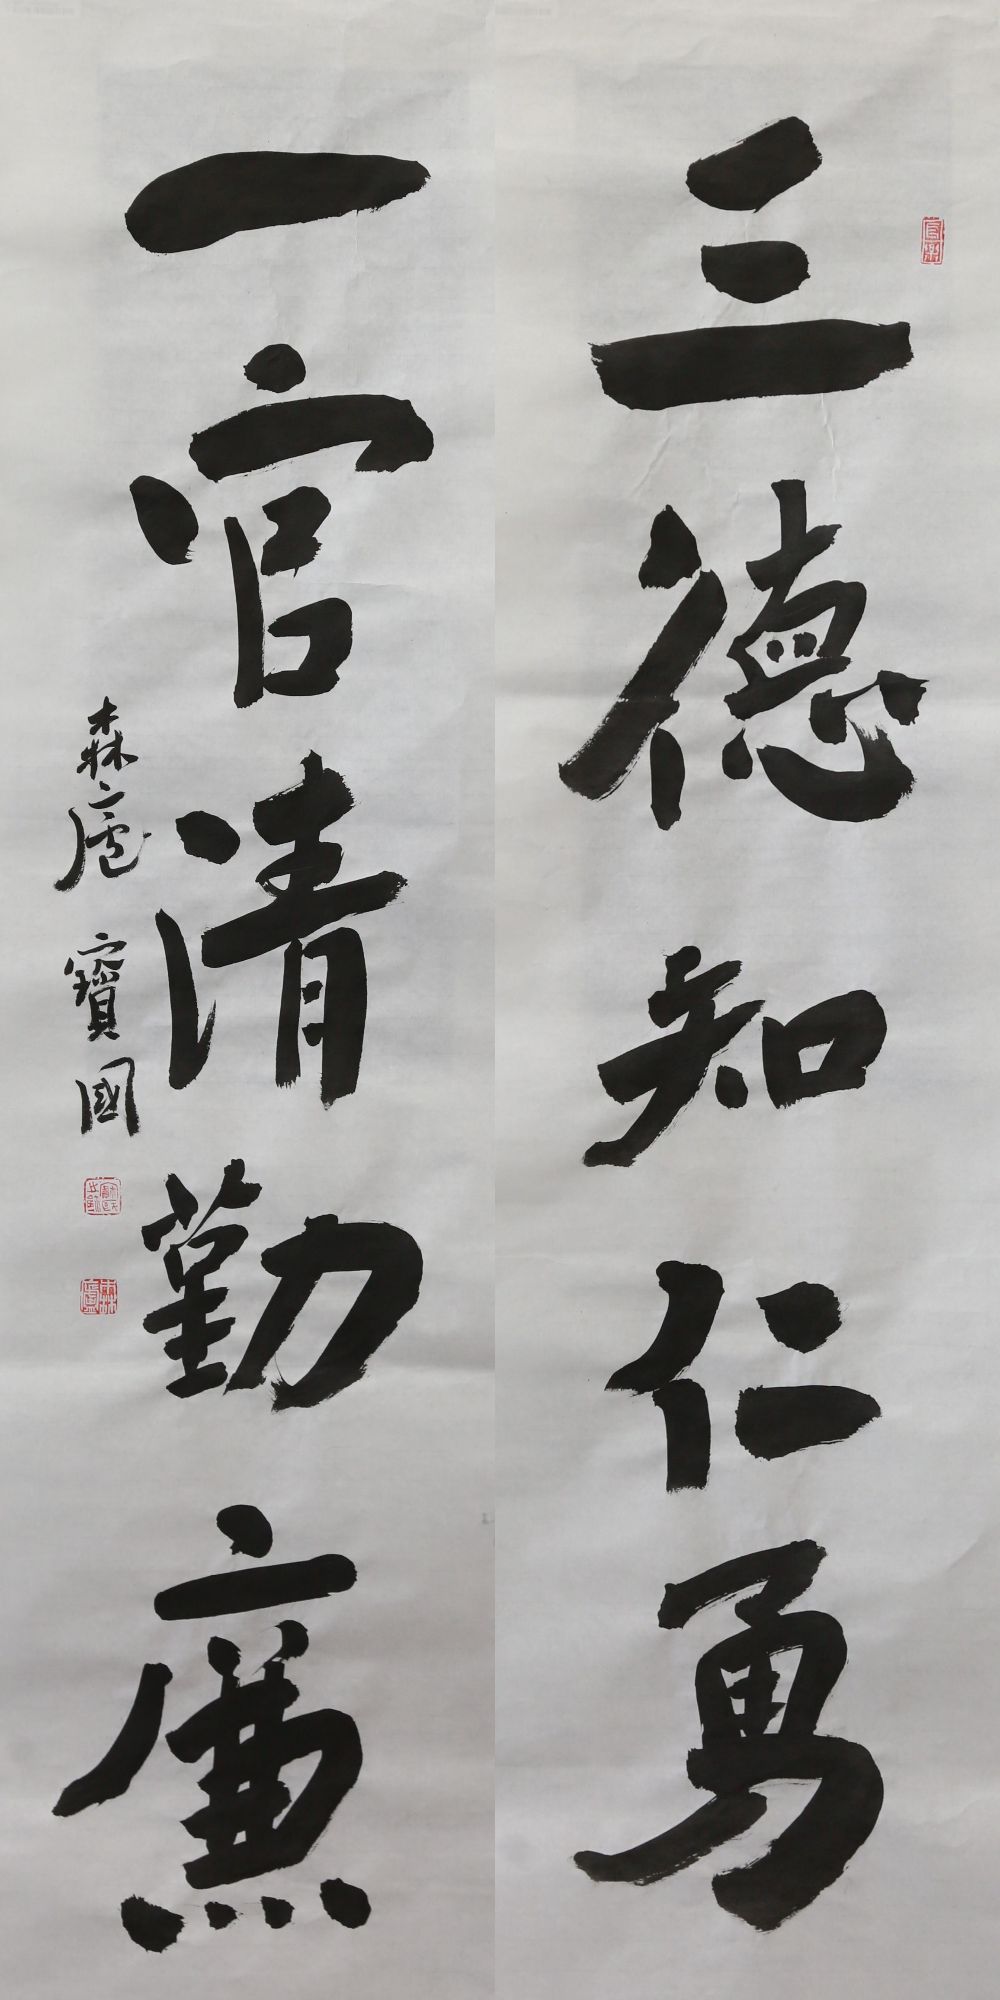 三德知仁勇
一官清勤廉
森廬 寶國